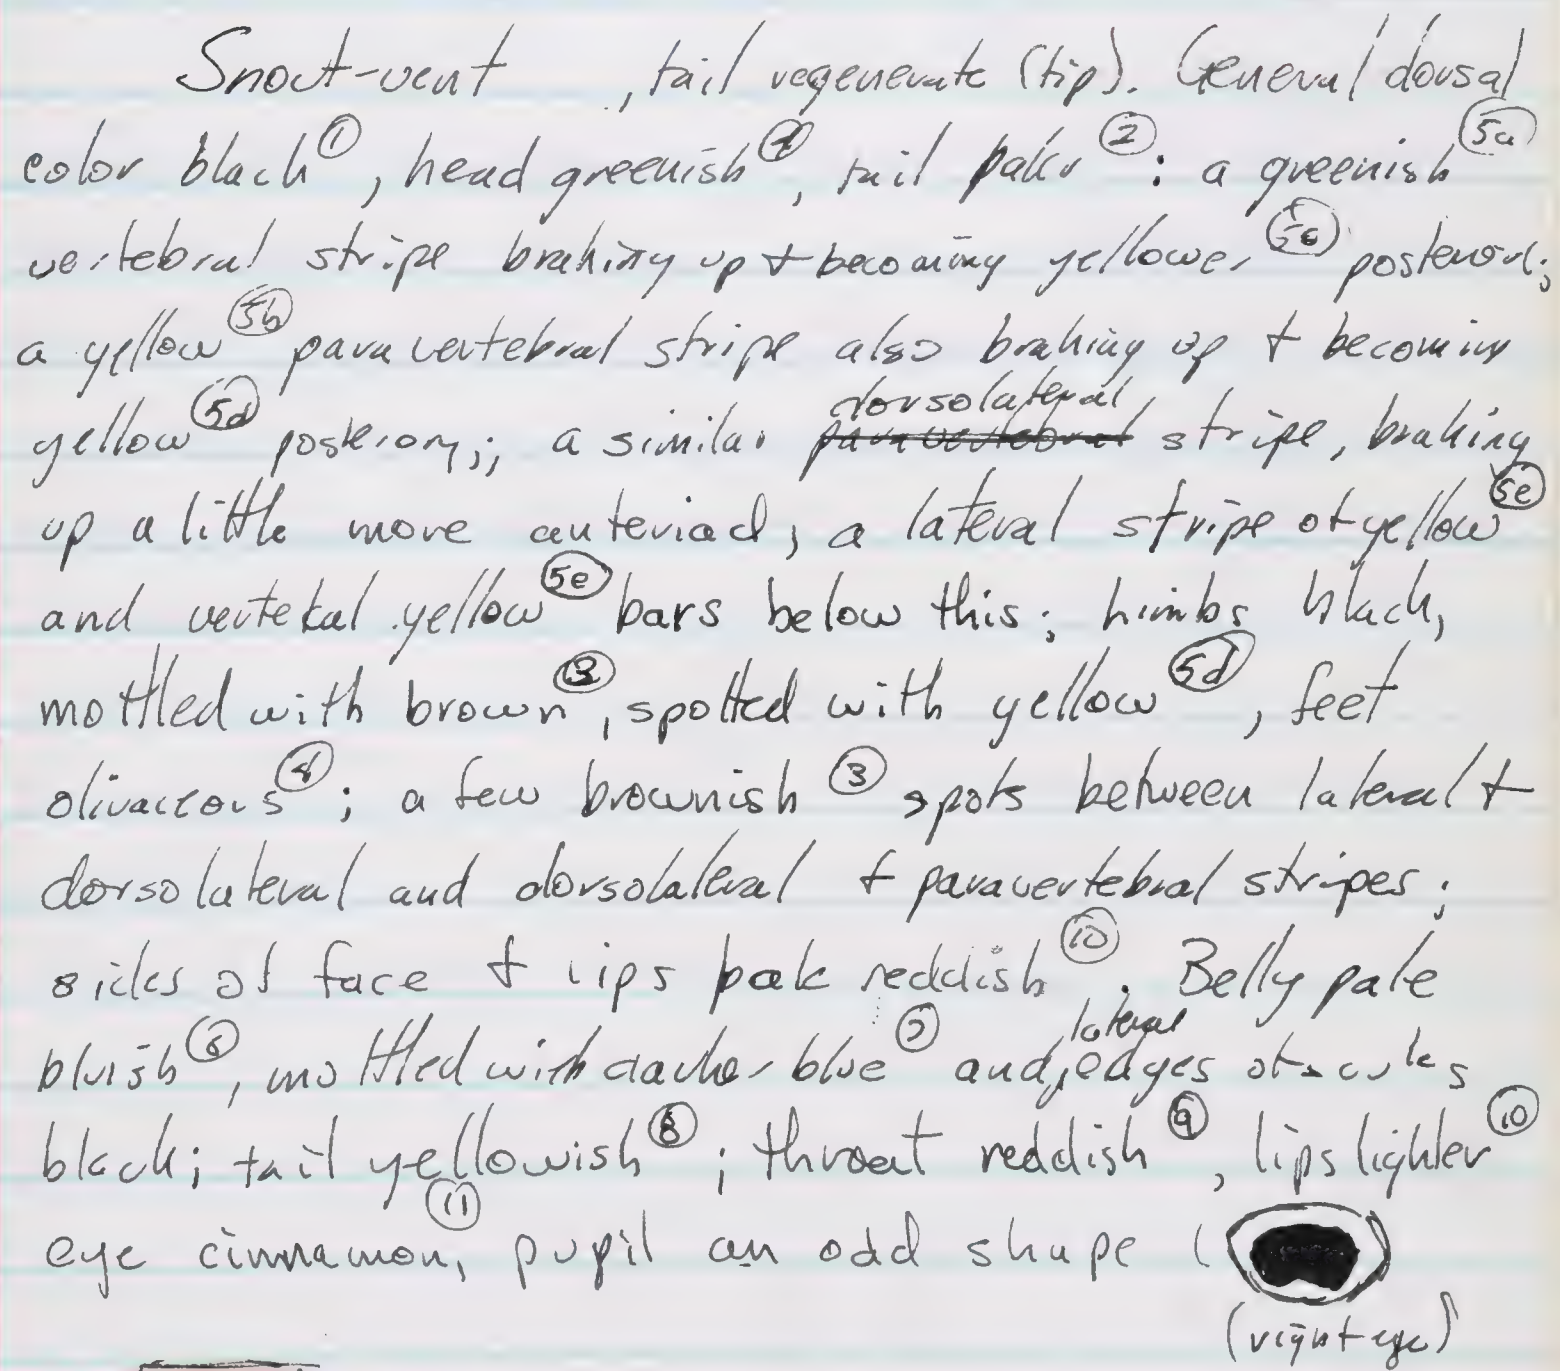 Snout-vent , tail regenerate (tip). General dorsal
color black ①, head greenish ④, tail paler ②: a greenish 5a
vertebral stripe braking up + becoming yellower 5c posteriorly;
a yellow 5b paravertebral stripe also braking up + becoming
yellow 5d posteriory; a similar ~~paravertebral~~ dorsolateral stripe, braking
up a little more anteriad; a lateral stripe of yellow 5e
and vertekal yellow 5e bars below this; himbs black,
mottled with brown ③, spotted with yellow 5d, feet
olivaceous ④; a few brownish ③ spots between lateral +
dorsolateral and dorsolateral + paravertebral stripes;
sides of face + lips pale reddish ⑩. Belly pale
bluish ⑥, mottled with darker blue ⑦ and lateral edges of scutes
black; tail yellowish ⑧; throat reddish ⑨, lips lighter ⑩
eye cinnamon ⑪, pupil an odd shape (
(right eye)